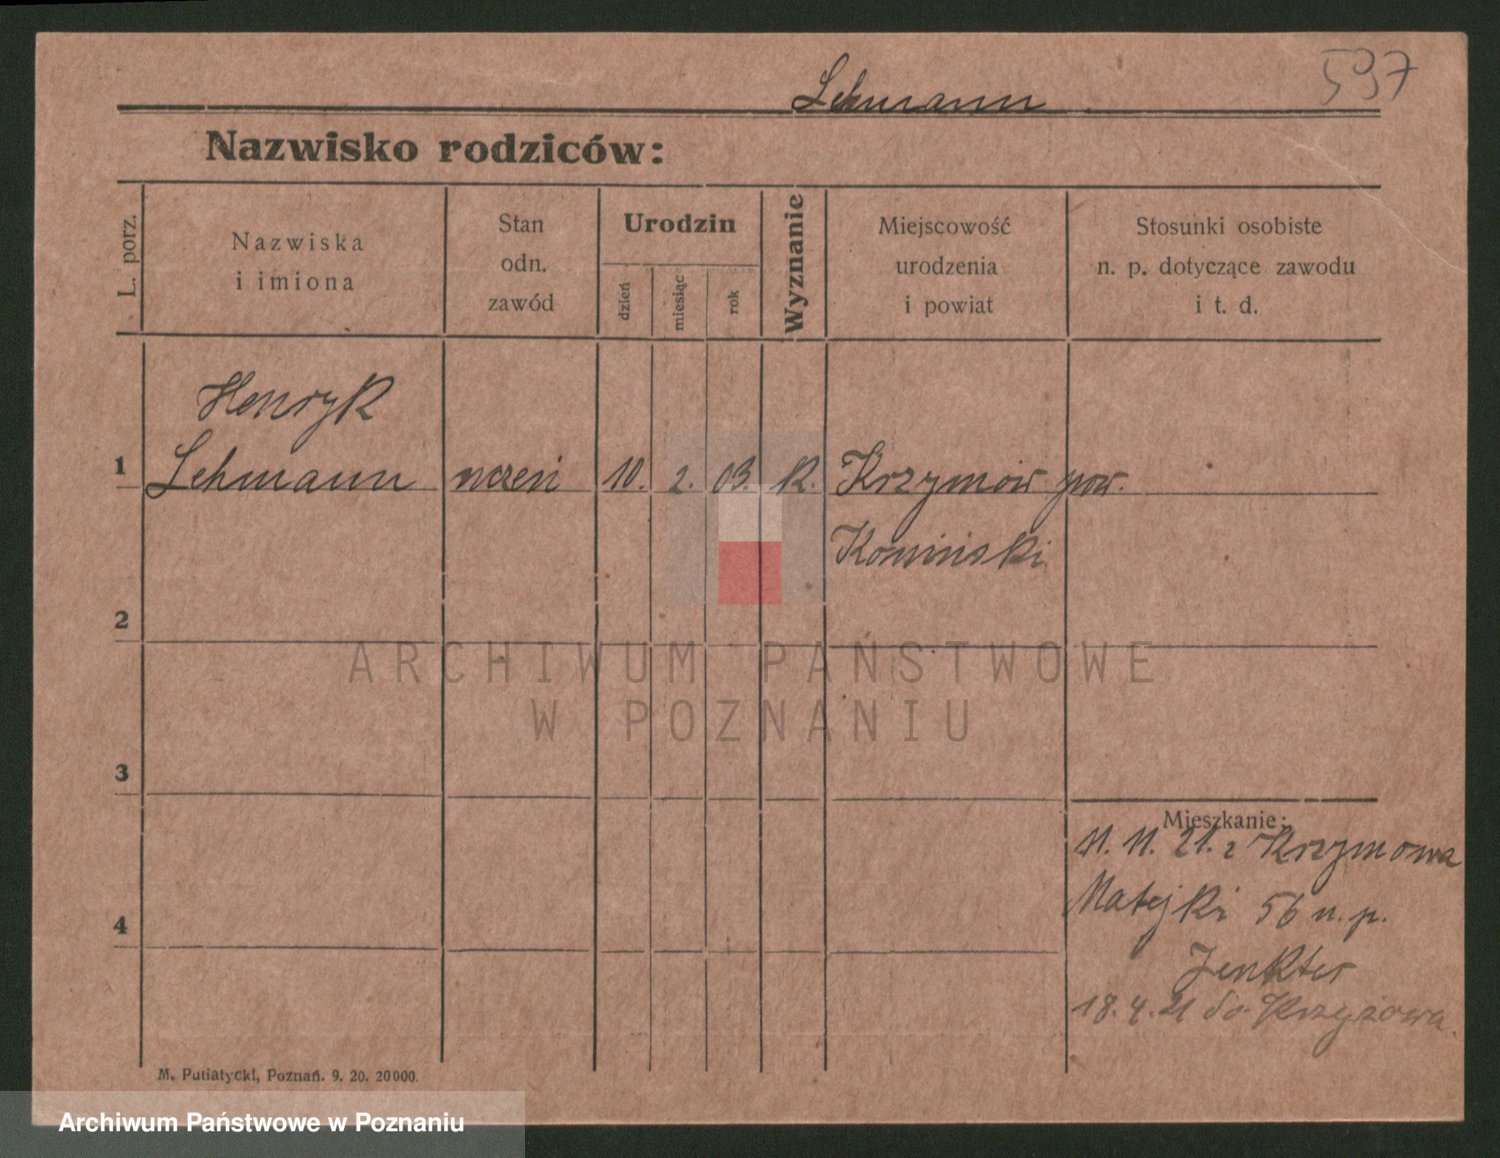 597
Lehmann
Nazwisko rodziców:
L. porz.
Nazwiska
i imiona
Stan
odn.
zawód
Urodzin
dzień
miesiąc
rok
Wyznanie
Miejscowość
urodzenia
i powiat
Stosunki osobiste
n. p. dotyczące zawodu
i t. d.
Henryk
1 Lehmann uczeń 10. 2. 03. K. Krzymów pow.
Koniński
2
ARCHIWUM PAŃSTWOWE
W POZNANIU
3
Mieszkanie:
11. 11. 21. z Krzymowa
4 Matejki 56 u. p.
18. 4. 21 do
M. Putiatycki, Poznań. 9. 20. 20000.
Archiwum Państwowe w Poznaniu